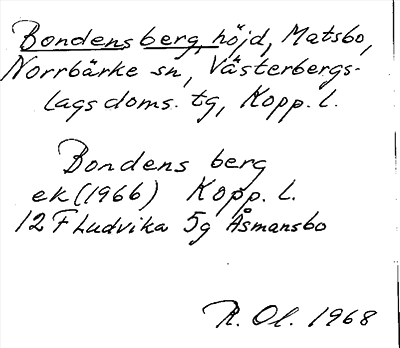 Bondens berg, höjd, Matsbo,
Norrbärke sn, Västerbergs-
lags doms. tg, Kopp. l.
Bondens berg
ek (1966) Kopp. l.
12 F Ludvika 5g Åsmansbo
R. Ol. 1968